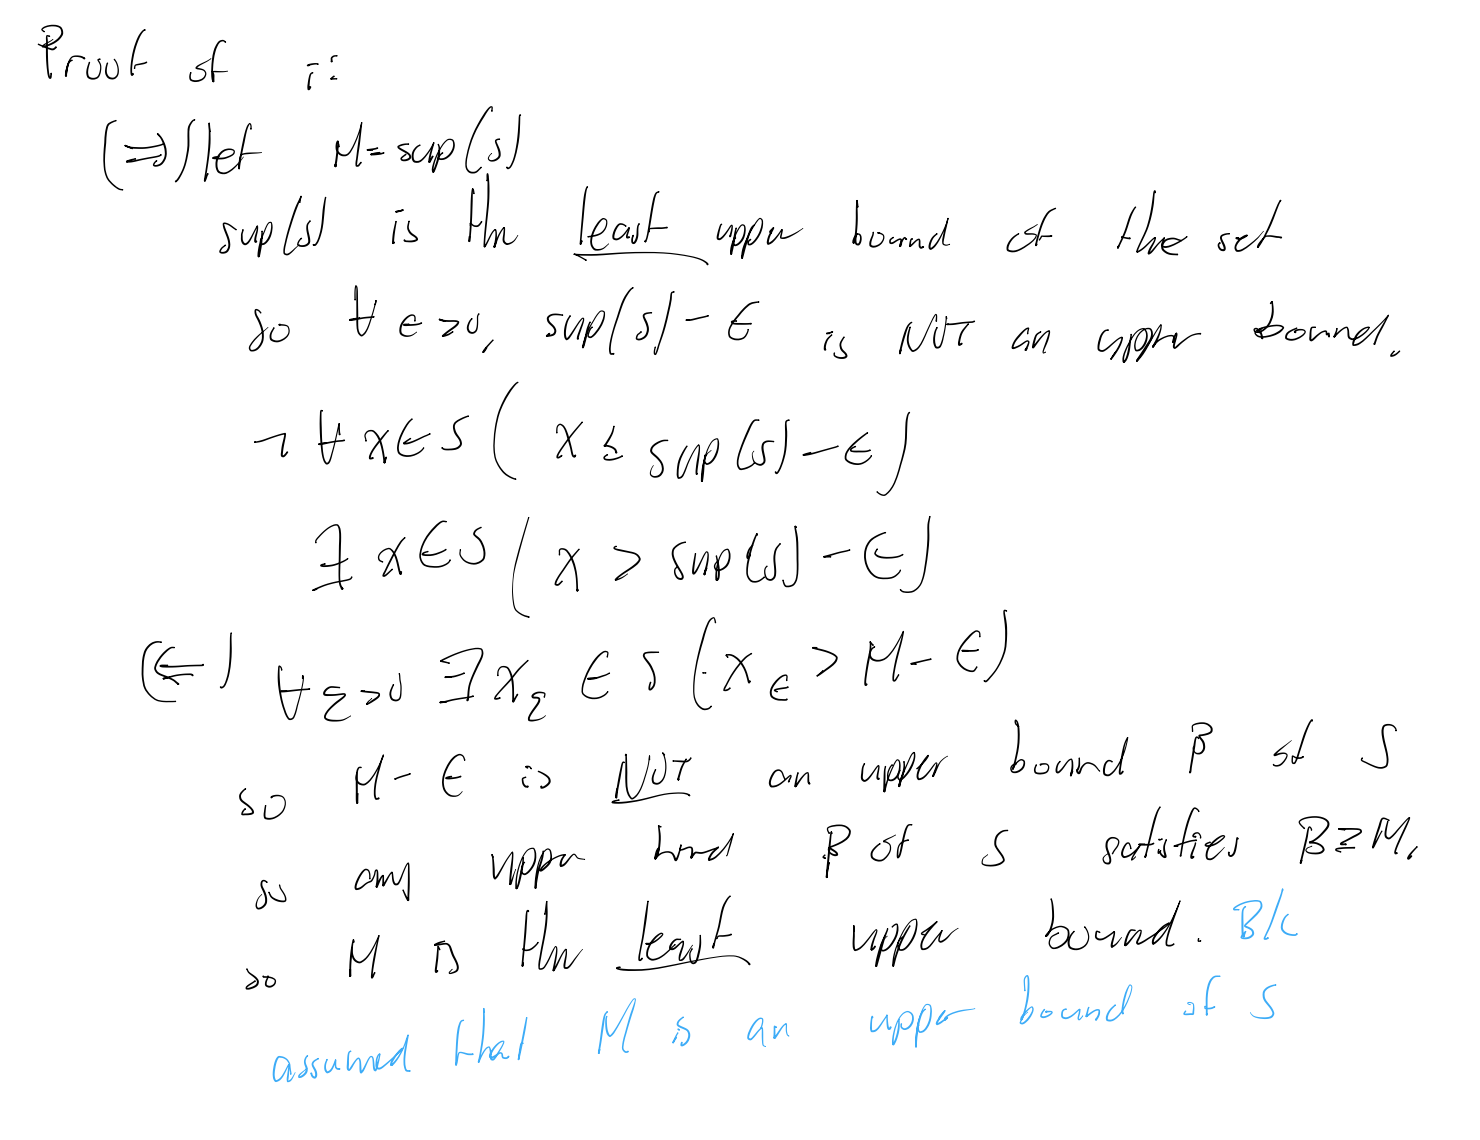 Proof of i:
(⇒) let M = sup(S)
sup(S) is the least upper bound of the set
so ∀ ϵ>0, sup(S) - ϵ is NOT an upper bound.
¬ ∀ x ∈ S ( x ≤ sup(S) - ϵ )
∃ x ∈ S ( x > sup(S) - ϵ )
(⇐) ∀ ε>0 ∃ x_ε ∈ S ( x_ϵ > M - ϵ )
so M - ϵ is NOT an upper bound β of S
so any upper bound β of S satisfies β ≥ M.
so M is the least upper bound. B/c
assumed that M is an upper bound of S